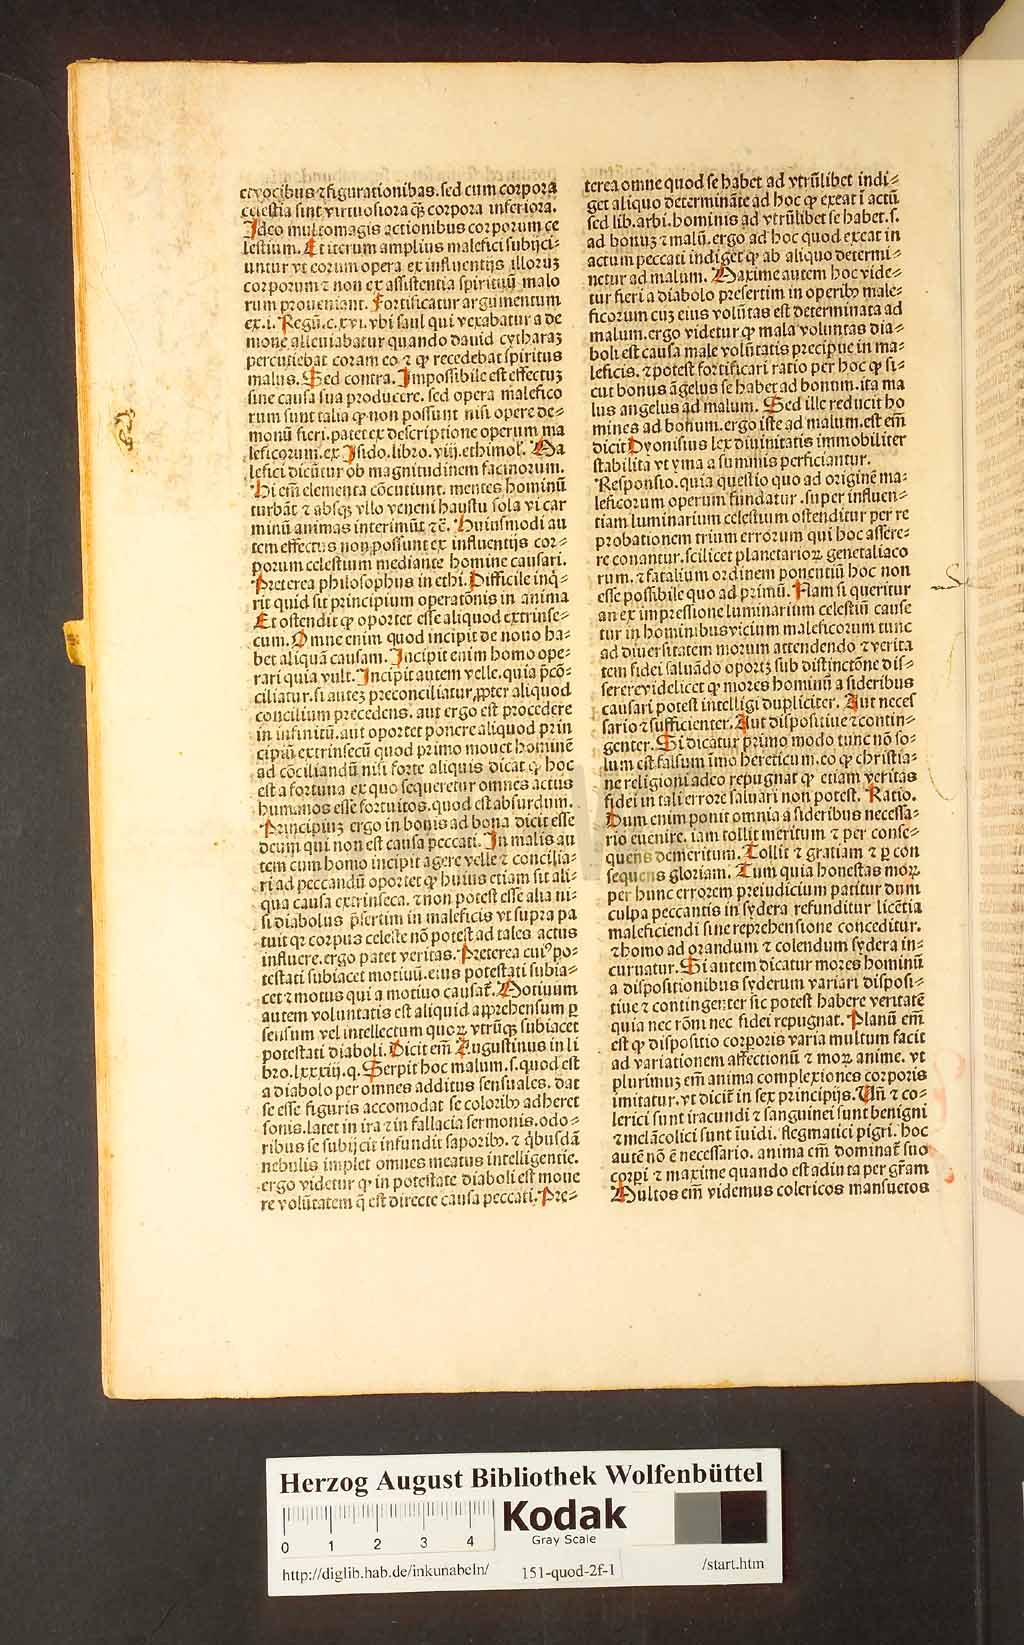 et vocibus ⁊ figurationibus. sed cum corpora
celestia sint virtuosiora q̃ꝫ corpora inferiora.
Ideo multomagis actionibus corporum ce
lestium. Et iterum amplius malefici subijci⸗
untur vt eorum opera ex influentijs illoruꝫ
corporum ⁊ non ex assistentia spirituũ malo
rum proueniant. Fortificatur argumentum
ex.i. Regũ.c.xvi. vbi saul qui vexabatur a de
mone alleuiabatur quando dauid cytharaꝫ
percutiebat coram eo ⁊ ꝙ recedebat spiritus
malus. Sed contra. Impossibile est effectuꝫ
sine causa sua producere. sed opera malefico
rum sunt talia ꝙ non possunt nisi opere de⸗
monũ fieri. patet ex descriptione operum ma
leficorum. ex Isido. libro. viij. ethimol. Ma
lefici dicũtur ob magnitudinem facinorum.
Hi em̃ elementa cõcutiunt. mentes hominũ
turbãt ⁊ absqꝫ vllo veneni haustu sola vi car
minũ animas interimũt ⁊c̃. Huiusmodi au
tem effectus non possunt ex influentijs cor⸗
porum celestium mediante homine causari.
Preterea philosophus in ethi. Difficile inq̃⸗
rit quid sit principium operatõnis in anima
Et ostendit ꝙ oportet esse aliquod extrinse⸗
cum. Omne enim quod incipit de nouo ha⸗
bet aliquã causam. Incipit enim homo ope⸗
rari quia vult. Incipit autem velle. quia p̃cõ⸗
ciliatur. si auteꝫ preconciliatur ꝓpter aliquod
concilium precedens. aut ergo est procedere
in infinitũ. aut oportet ponere aliquod prin
cipiũ extrinsecũ quod primo mouet hominẽ
ad cõciliandũ nisi forte aliquis dicat ꝙ hoc
est a fortuna ex quo sequeretur omnes actus
humanos esse fortuitos. quod est absurdum.
Principiuꝫ ergo in bonis ad bona dicit esse
deum qui non est causa peccati. In malis au
tem cum homo incipit agere velle ⁊ concilia⸗
ri ad peccandũ oportet ꝙ huius etiam sit ali⸗
qua causa extrinseca. ⁊ non potest esse alia ni⸗
si diabolus p̃sertim in maleficis vt supra pa
tuit qꝛ corpus celeste nõ potest ad tales actus
influere. ergo patet veritas. Preterea cuiꝰ po⸗
testati subiacet motiuũ. eius potestati subia⸗
cet ⁊ motus qui a motiuo causat̃. Motiuum
autem voluntatis est aliquid apprehensum ꝑ
sensum vel intellectum quoꝝ vtrũqꝫ subiacet
potestati diaboli. Dicit em̃ Augustinus in li
bro. lxxxiij. q. Serpit hoc malum. s. quod est
a diabolo per omnes additus sensuales. dat
se esse figuris accomodat se coloribꝰ adheret
sonis. latet in ira ⁊ in fallacia sermonis. odo⸗
ribus se subijcit infundit saporibꝰ. ⁊ q̃busdã
nebulis implet omnes meatus intelligentie.
ergo videtur ꝙ in potestate diaboli est moue
re volũtatem q̃ est directe causa peccati. Pre⸗
terea omne quod se habet ad vtrũlibet indi⸗
get aliquo determinãte ad hoc ꝙ exeat ĩ actũ
sed lib. arbi. hominis ad vtrũlibet se habet. s.
ad bonuꝫ ⁊ malũ. ergo ad hoc quod exeat in
actum peccati indiget ꝙ ab aliquo determi⸗
netur ad malum. Maxime autem hoc vide⸗
tur fieri a diabolo presertim in operibꝰ male⸗
ficorum cuꝫ eius volũtas est determinata ad
malum. ergo videtur ꝙ mala voluntas dia⸗
boli est causa male volũtatis precipue in ma⸗
leficis. ⁊ potest fortificari ratio per hoc ꝙ si⸗
cut bonus ãgelus se habet ad bonum. ita ma
lus angelus ad malum. Sed ille reducit ho
mines ad bonum. ergo iste ad malum. est em̃
dicit Dyonisius lex diuinitatis immobiliter
stabilita vt yma a summis perficiantur.
Responsio. quia questio quo ad originẽ ma⸗
leficorum operum fundatur. super influen⸗
tiam luminarium celestium ostenditur per re
probationem trium errorum qui hoc assere⸗
re conantur. scilicet planetarioꝝ genetaliaco
rum. ⁊ fatalium ordinem ponentiũ hoc non
esse possibile quo ad primũ. Nam si queritur
an ex impressione luminarium celestiũ cause
tur in hominibus vicium maleficorum tunc
ad diuersitatem morum attendendo ⁊ verita
tem fidei saluãdo oportꝫ sub distinctõne dis⸗
serere videlicet ꝙ mores hominũ a sideribus
causari potest intelligi dupliciter. Aut neces
sario ⁊ sufficienter. Aut dispositiue ⁊ contin⸗
genter. Si dicatur primo modo tunc nõ so⸗
lum est falsum ĩmo hereticum. eo ꝙ christia⸗
ne religioni adeo repugnat ꝙ etiam veritas
fidei in tali errore saluari non potest. Ratio.
Dum enim ponit omnia a sideribus necessa⸗
rio euenire. iam tollit meritum ⁊ per conse⸗
quens demeritum. Tollit ⁊ gratiam ⁊ ꝑ con
sequens gloriam. Tum quia honestas moꝝ
per hunc errorem preiudicium patitur dum
culpa peccantis in sydera refunditur licẽtia
maleficiendi sine reprehensione conceditur.
⁊ homo ad orandum ⁊ colendum sydera in⸗
curuatur. Si autem dicatur mores hominũ
a dispositionibus syderum variari disposi⸗
tiue ⁊ contingenter sic potest habere veritatẽ
quia nec rõni nec fidei repugnat. Planũ em̃
est ꝙ dispositio corporis varia multum facit
ad variationem affectionũ ⁊ moꝝ anime. vt
plurimuꝫ em̃ anima complexiones corporis
imitatur. vt dicit̃ in sex principijs. Uñ ⁊ co⸗
lerici sunt iracundi ⁊ sanguinei sunt benigni
⁊ melãcolici sunt ĩuidi. flegmatici pigri. hoc
autẽ nõ ẽ necessario. anima em̃ dominat̃ suo
corpi ⁊ maxime quando est adiuta per gr̃am
Multos em̃ videmus colericos mansuetos
Herzog August Bibliothek Wolfenbüttel
0 1 2 3 4
Kodak
Gray Scale
http://diglib.hab.de/inkunabeln/ 151-quod-2f-1 /start.htm